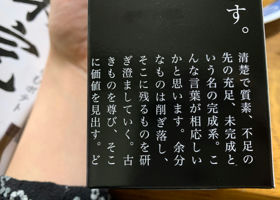 す。
清楚で質素、不足の
先の充足、未完成と
いう名の完成系。こ
んな言葉が相応しい
かと思います。余分
なものは削ぎ落し、
そこに残るものを研
ぎ澄ましていく。古
きものを尊び、そこ
に価値を見出す。ど